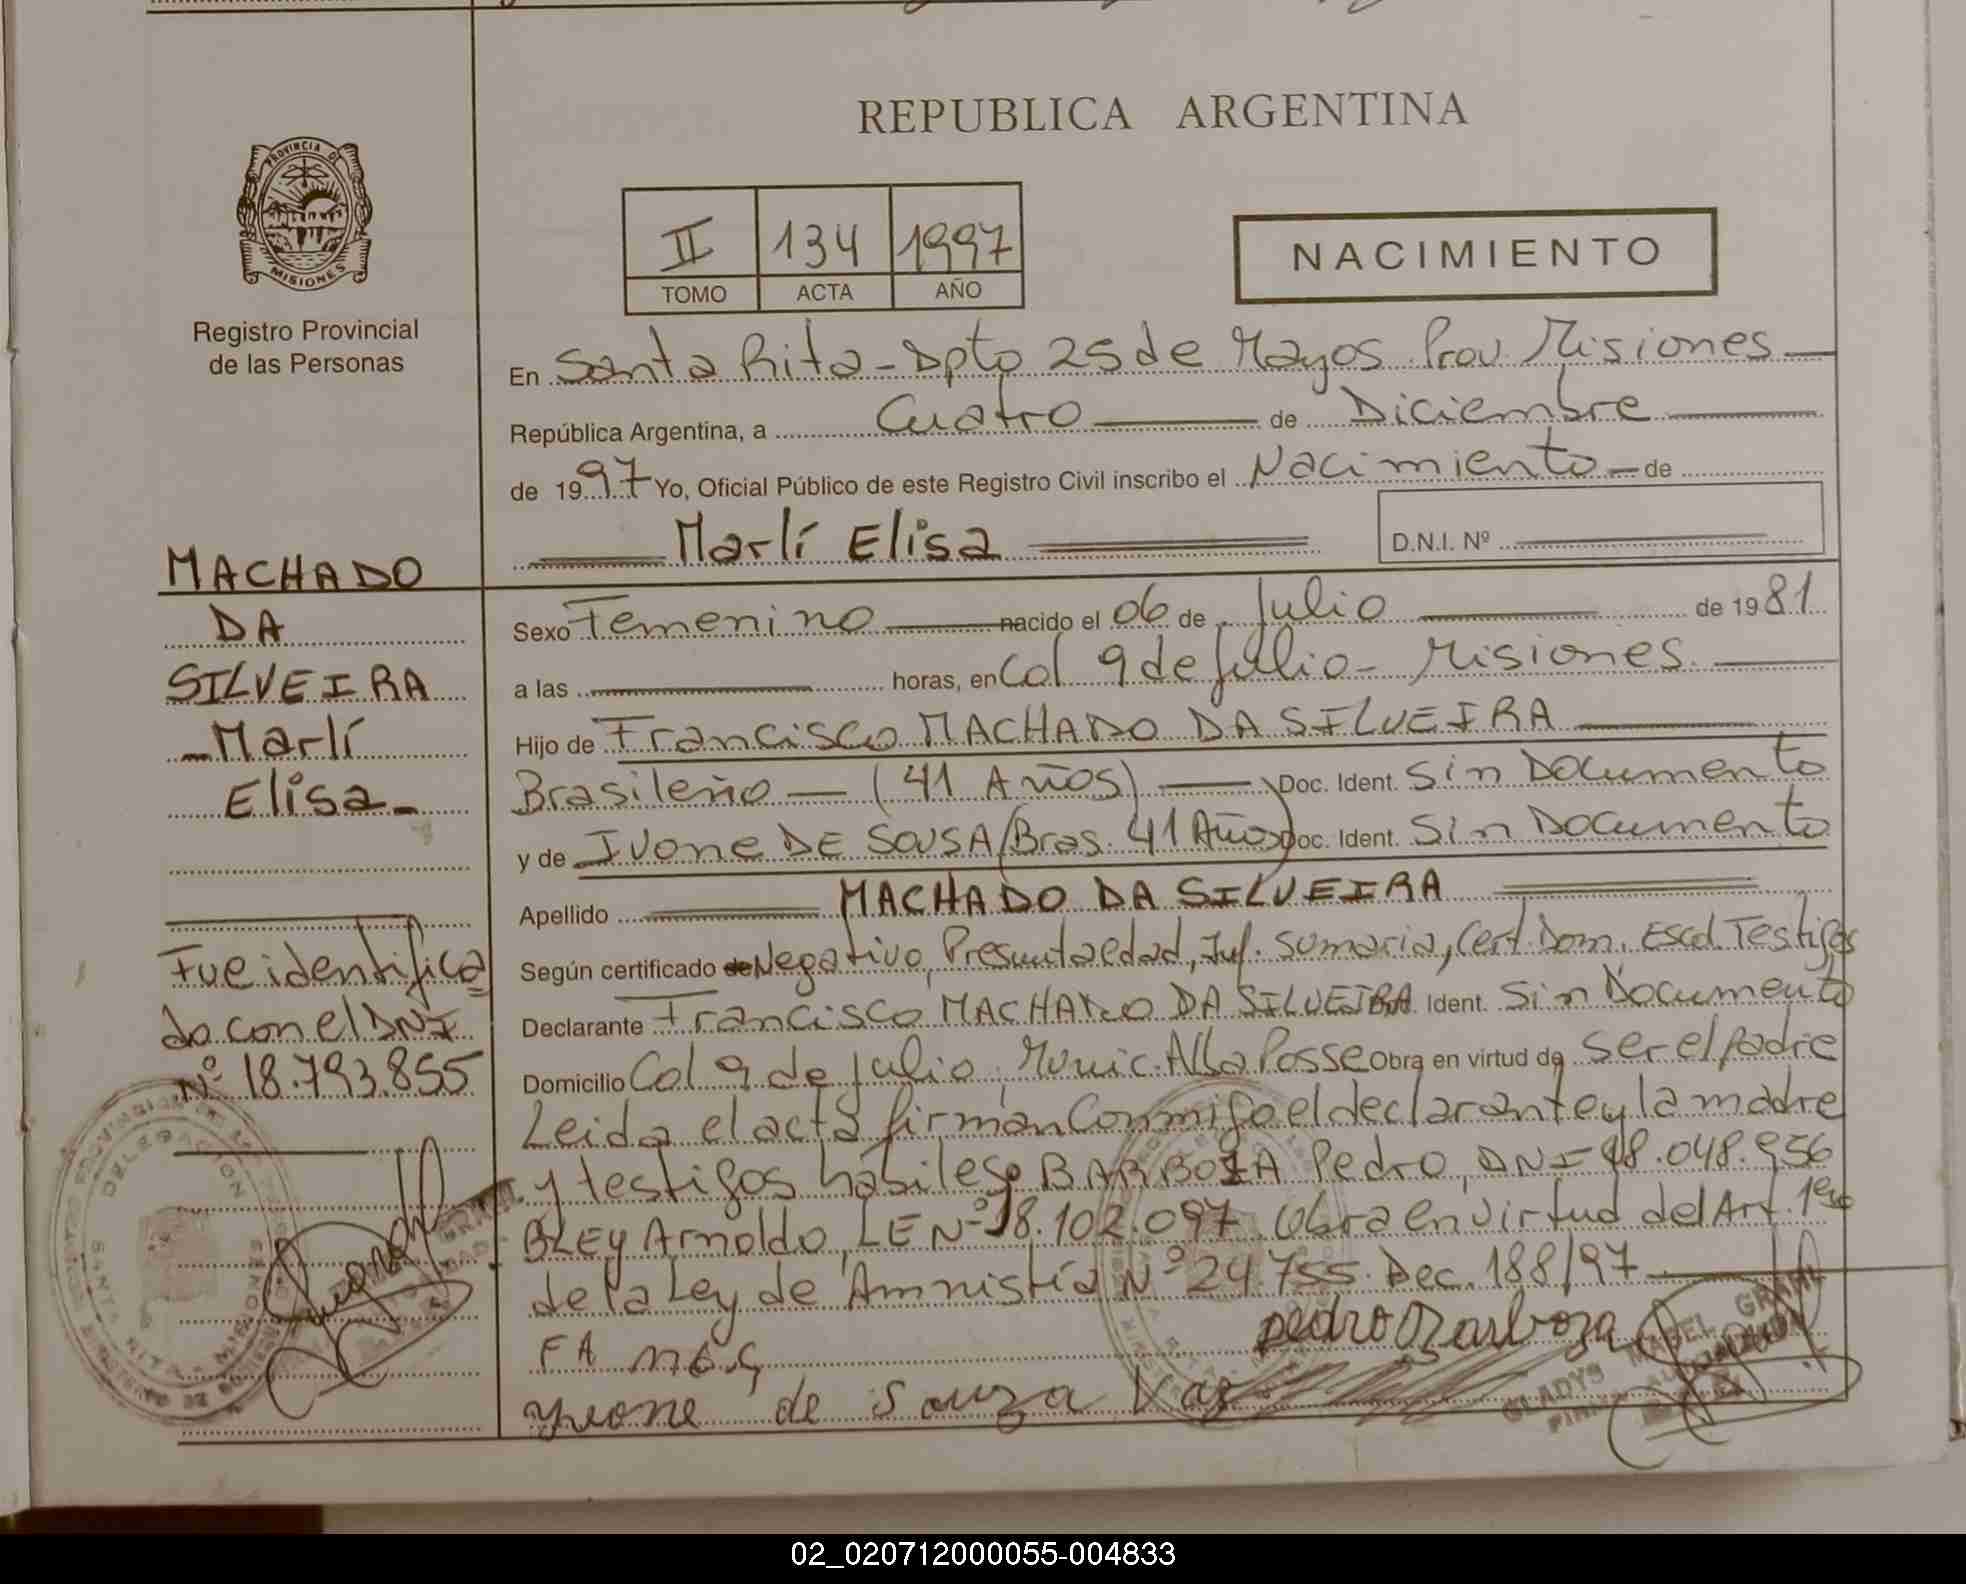 REPUBLICA ARGENTINA
PROVINCIA DE MISIONES
Registro Provincial
de las Personas
II 134 1997
TOMO ACTA AÑO
NACIMIENTO
En Santa Rita - Dpto 25 de Mayos Prov. Misiones
República Argentina, a Cuatro de Diciembre
de 1997 Yo, Oficial Público de este Registro Civil inscribo el Nacimiento de
Marlí Elisa D.N.I. Nº
MACHADO
DA
SILVEIRA
Marlí
Elisa
Sexo Femenino nacido el 06 de Julio de 1981
a las horas, en Col 9 de Julio - Misiones.
Hijo de Francisco MACHADO DA SILVEIRA
Brasileño (41 Años) Doc. Ident. Sin Documento
y de Ivone DE SOUSA (Bras. 41 Años) Doc. Ident. Sin Documento
Apellido MACHADO DA SILVEIRA
Según certificado de Negativo, Presunta edad, Inf. Sumaria, Cert. Dom. Escd. Testigos
Declarante Francisco MACHADO DA SILVEIRA Ident. Sin Documento
Domicilio Col 9 de Julio, Munic. Alba Posse Obra en virtud de ser el padre
Leida el acta firman Conmigo el declarante y la madre
y testigos hábiles BARBOZA Pedro, DNI 18.048.956
BLEY Arnoldo, LE Nº 8.102.097 Obra en virtud del Art. 1ero
de la Ley de Amnistía Nº 24.755. Dec. 188/97
Fue identifica
do con el DNI
Nº 18.793.855
pedro Barboza
yvone de Souza Vaz
GLADYS MABEL GRAHL
02_020712000055-004833